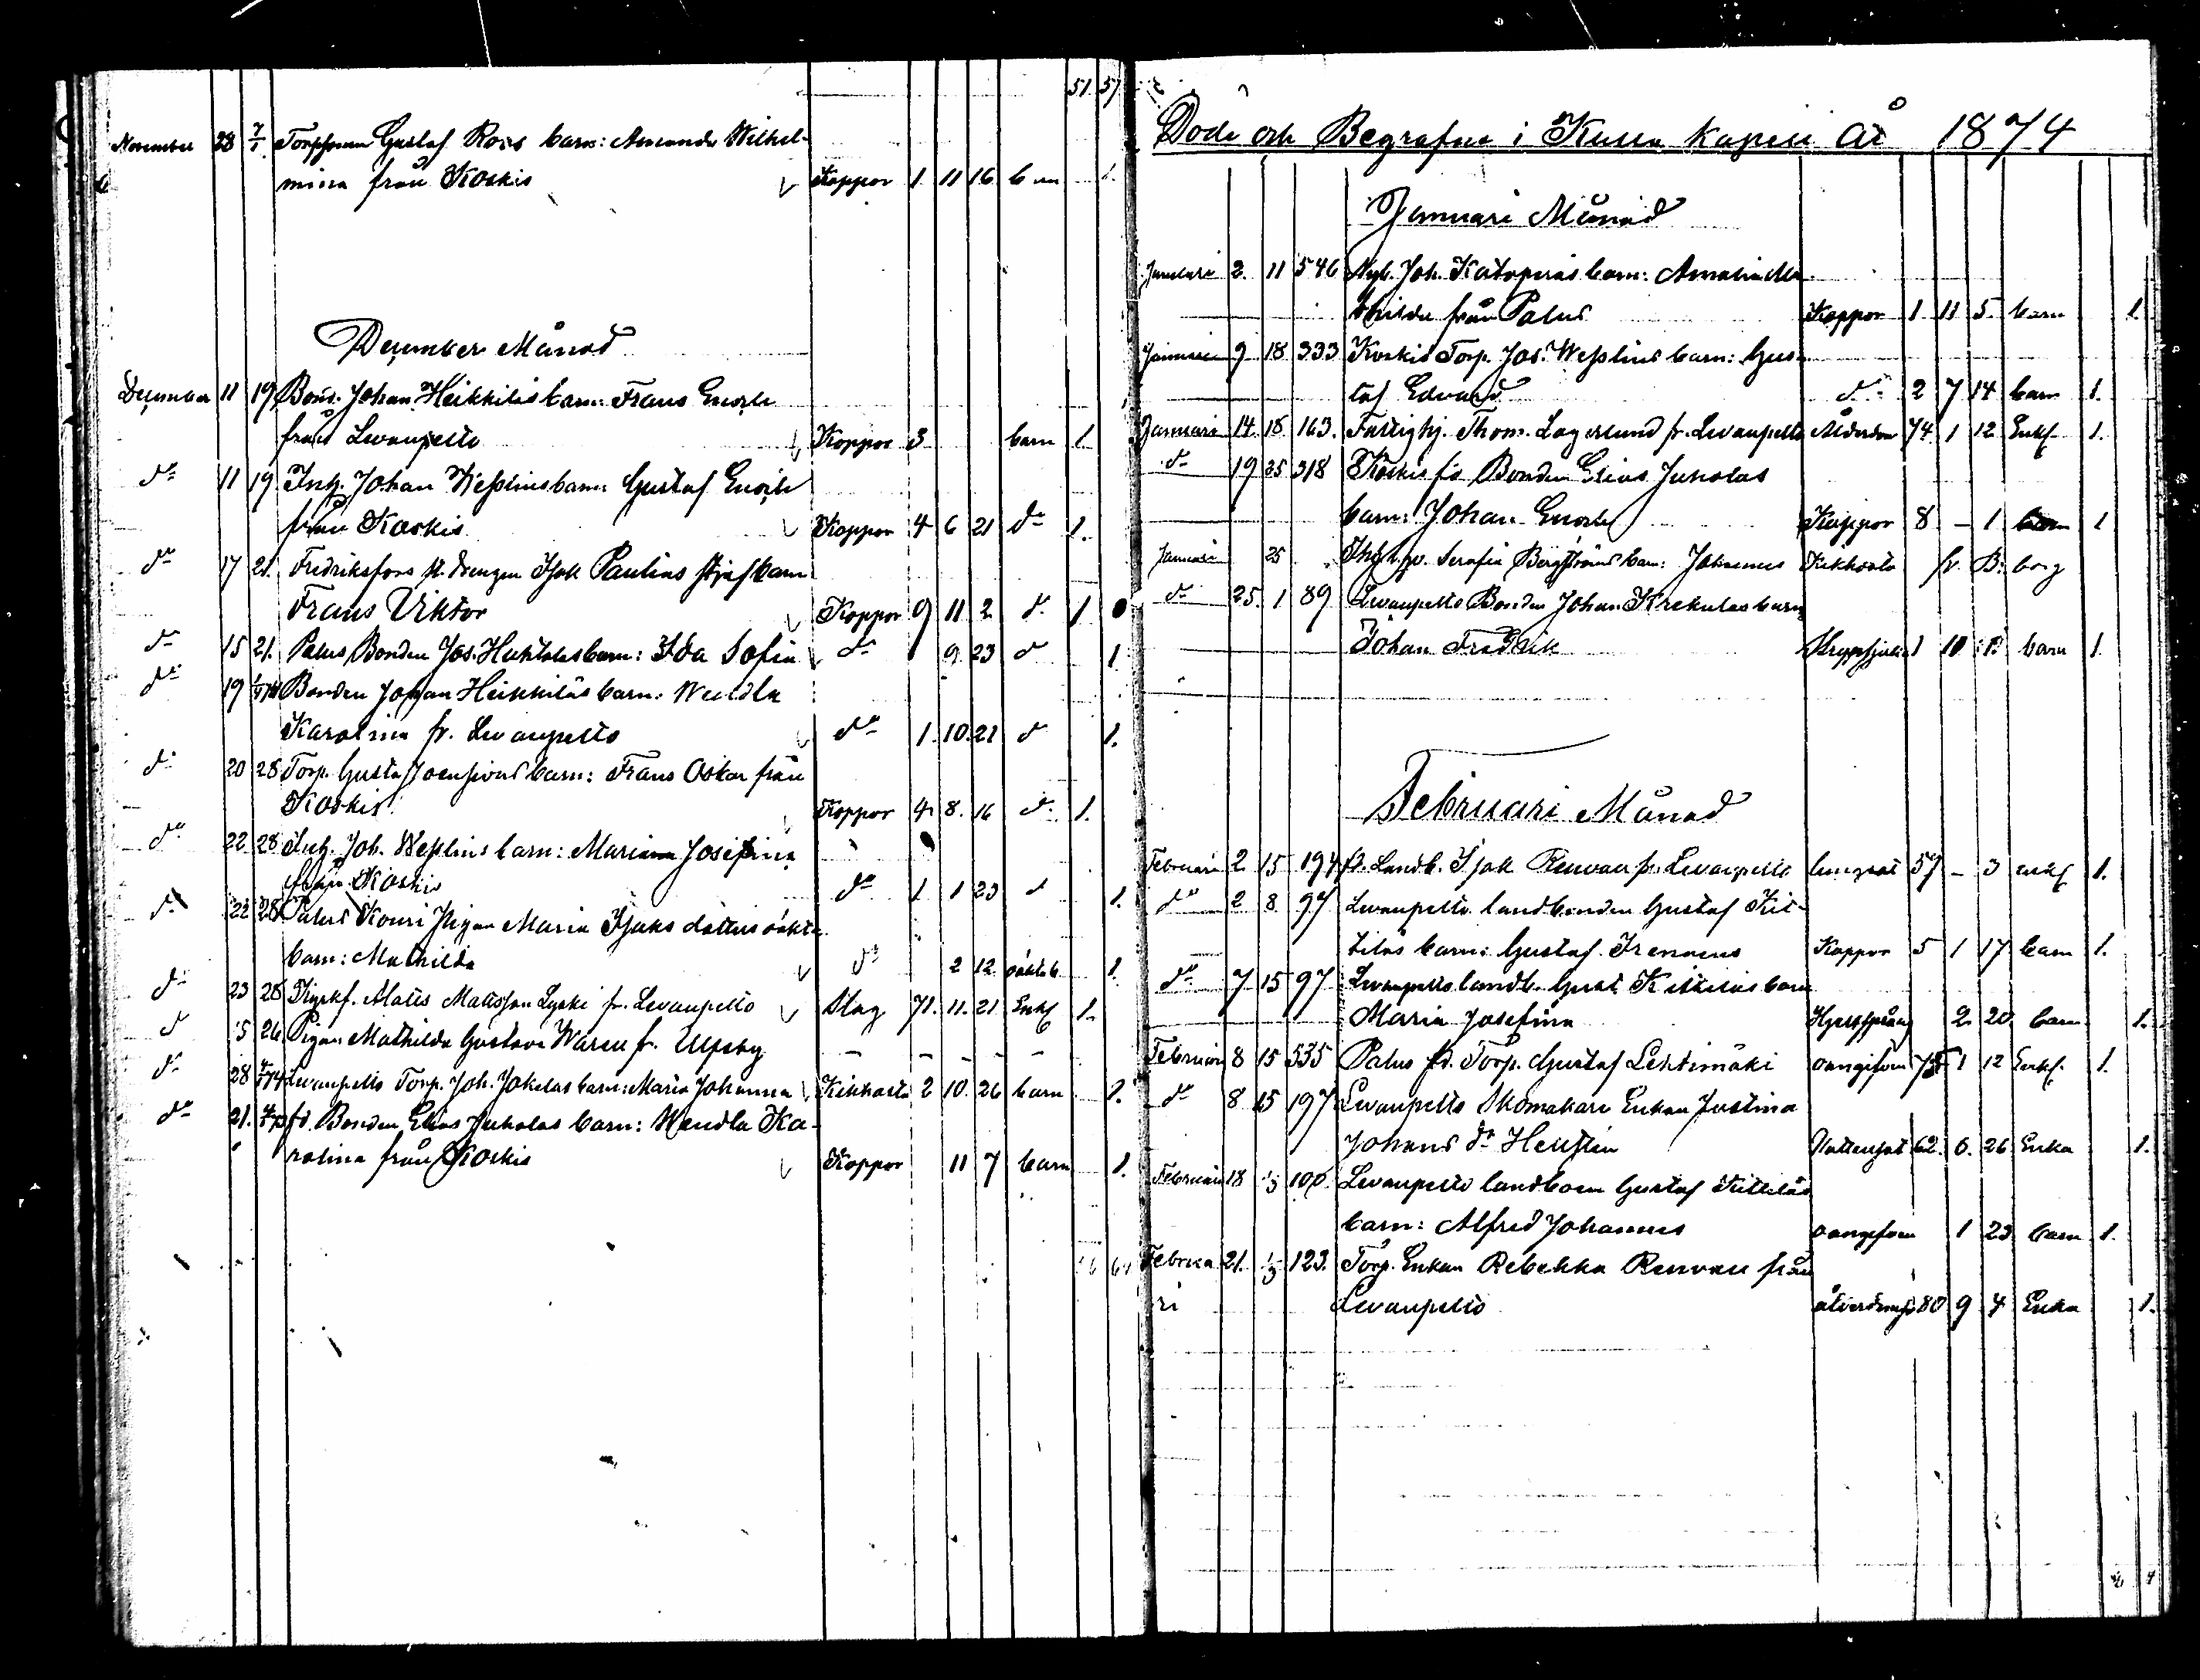 51 57
November 28 7/1 Torpforaren Gustaf Ross barn: Amanda Wilhel-
mina från Koskis Koppor 1 11 16 barn 1.
December Månad
December 11 19 Bond. Johan Heikkiläs barn: Frans Enock
från Levanpelto Koppor 3 barn 1
do 11 19. Inh. Johan Wesslins barn: Gustaf Enock
från Koskis Koppor 4 6 21 do 1.
do 17 21. Fredriksfors st. drengen Isak Paulins barn
Frans Viktor Koppor 9 11 2 do 1
do 15 21. Palus Bonden Jos. Huhtalas barn: Ida Sofia do 9 23 do 1
do 19 Bonden Johan Heikkiläs barn: Wendla
Karolina fr. Levanpelto do 1. 10. 21 do 1.
do 20 28 Torp. Gustaf barn: Frans Oskar från
Koskis Koppor 4 8. 16 do 1.
do 22 28 Inh. Joh. Wesslins barn: Maria Josefina
från Koskis do 1 1 23 do 1.
do 22 28 Palus Kouri Pigan Maria Isaks dotters oäkta
barn: Mathilda do 2 12. oäkta b. 1.
do 23 28 Matts Mattsson Lyski fr. Levanpelto Slag 71. 11. 21 Enkf 1.
do 26 Pigan Mathilda Gustava Waren fr. Ulfsby – – – – –
do 28 Levanpelto Torp. Joh. Jokelas barn: Maria Johanna Kikhosta 2 10. 26 barn 1.
do 21. fd. Bonden Elias Juholas barn: Wendla Ka-
rolina från Koskis Koppor 11 7 barn 1.
Döde och Begrafne i Kulla kapell År 1874
Januari Månad
Januari 2. 11 546 Nyb. Joh. barn: Amalia Ma-
thilda från Palus Koppor 1 11 5. barn 1.
Januari 9 18 333 Koskis Torp. Jos. Wesslins barn: Gus-
taf Edvard do 2 7 14 barn 1.
Januari 14. 18. 163. Fattighj. Thom. Lagerlund fr. Levanpelto Ålderdom 74 1 12 Enkf. 1.
do 19 25 318 Koskis fd Bonden Elias Juholas
barn: Johan Enock Koppor 8 – 1 barn 1
Januari 25 Serafia Bergströms barn: Johannes Kikhosta fr. B:borg
do 25. 1 89 Levanpelto Bonden Johan Krekulas barn
Johan Fredrik 1 10 barn 1.
Februari Månad
Februari 2 15 197 fd. Landb. Isak Renvan fr. Levanpelto lungsot 57 – 3 enkf 1.
do 2 8. 97 Levanpelto landbonden Gustaf Kit-
tiläs barn: Gustaf Irenaeus Koppor 5 1 17 barn 1.
do 7 15 97 Levanpelto landb. Gust. Kittiläs barn
Maria Josefina 2. 20. barn 1.
Februari 8 15 535 Palus fd. Torp. Gustaf Lehtimäki oangifven 1 12 Enkf. 1.
do 8 15 197 Levanpelto Skomakare Enkan Justina
Johans dr Hellsten Vattensot 62. 6. 26 Enka 1.
Februari 18 1/3 100. Levanpelto landboen Gustaf Kittiläs
barn: Alfred Johannes oangifven 1 23 barn 1.
Februa 21. 1/3 123. Torp. Enkan Rebekka Renvan från
ri Levanpelto 80 9 4 Enka 1.